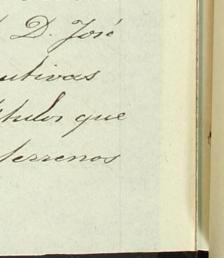 D. José
utivas
ítulos que
terrenos